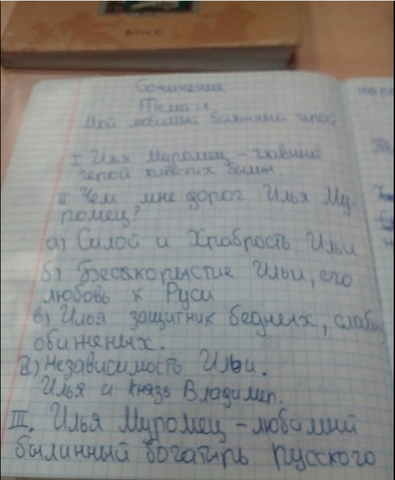 Сочинение
Тема:
Мой любимый былинный герой
I Илья Муромец - главный
герой киевских былин.
II Чем мне дорог Илья Му-
ромец?
а) Силой и Храбрость Ильи
б) Бескорыстие Ильи, его
любовь к Руси
в) Илья защитник бедных, слабых
обиженых.
г) Независимость Ильи.
Илья и Князь Владимер.
III. Илья Муромец - любимий
былинный богатырь русского